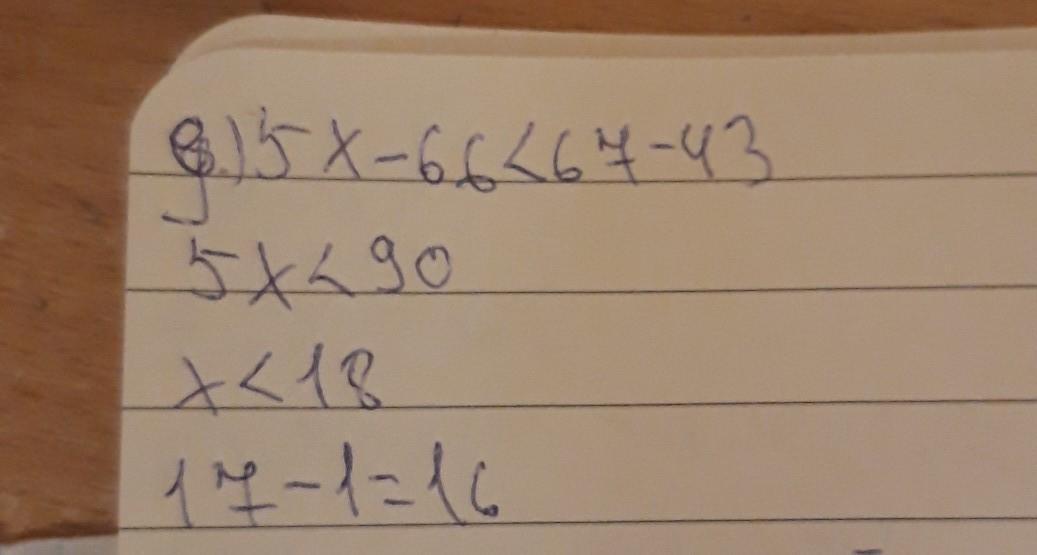 g.) 5x-66<67-43
5x<90
x<18
17-1=16